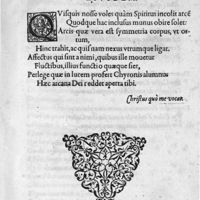 QVisquis nosse voles quàm Spiritus incolit arcē
Quodque hac inclusus munus obire solet:
Arcis quæ vera est symmetria corpus, vt or-
tum,
Hinc trahit, ac quis nam nexus vtrumque ligat.
Affectus qui sint animi, quibus ille mouetur
Fluctibus, illius functio quæque siet,
Perlege quæ in lucem profert Chyronis alumnos
Hæc arcana Dei reddet aperta tibi.
Christus quò me vocat.